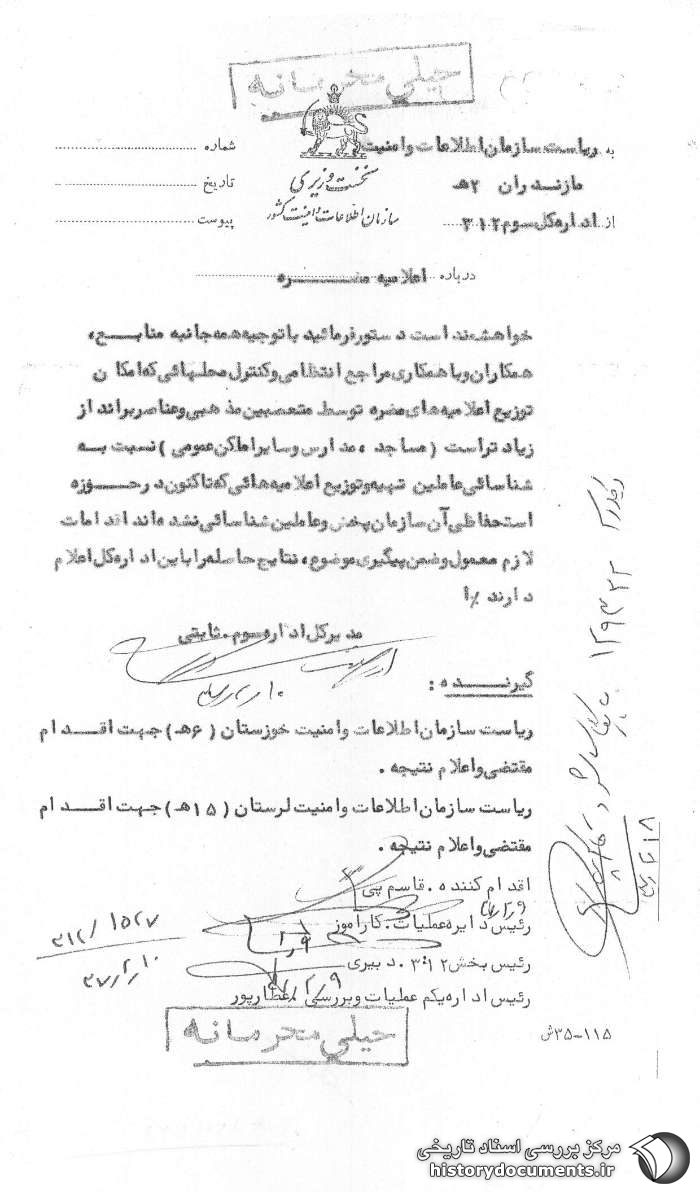 خیلی محرمانه
به ریاست سازمان اطلاعات و امنیت
مازندران ۲هـ
از اداره کل سوم ۳۱۲
نخست وزیری
سازمان اطلاعات و امنیت کشور
شماره
تاریخ
پیوست
درباره اعلامیه مضره
خواهشمند است دستور فرمائید با توجیه همه جانبه منابع ،
همکاران و با همکاری مراجع انتظامی و کنترل محلهائی که امکان
توزیع اعلامیه های مضره توسط متعصبین مذهبی و عناصر برانداز
زیادتر است ( مساجد ، مدارس و سایر اماکن عمومی ) نسبت به
شناسائی عاملین تهیه و توزیع اعلامیه هائی که تاکنون در حوزه
استحفاظی آن سازمان پخش و عاملین شناسائی نشده اند اقدامات
لازم معمول و ضمن پیگیری موضوع ، نتایج حاصله را باین اداره کل اعلام
دارند ٪ا
مدیر کل اداره سوم . ثابتی
گیرنده :
ریاست سازمان اطلاعات و امنیت خوزستان ( ۶هـ ) جهت اقدام
مقتضی و اعلام نتیجه .
ریاست سازمان اطلاعات و امنیت لرستان ( ۱۵هـ ) جهت اقدام
مقتضی و اعلام نتیجه .
اقدام کننده . قاسم پی
رئیس دایره عملیات . کارآموز
رئیس بخش ۳۱۲ . دبیری
رئیس اداره یکم عملیات و بررسی . عطارپور
۳۱۲/۱۵۲۷
۳۷/۲/۱۰
خیلی محرمانه
۱۱۵-۳۵ش
مرکز بررسی اسناد تاریخی
historydocuments.ir